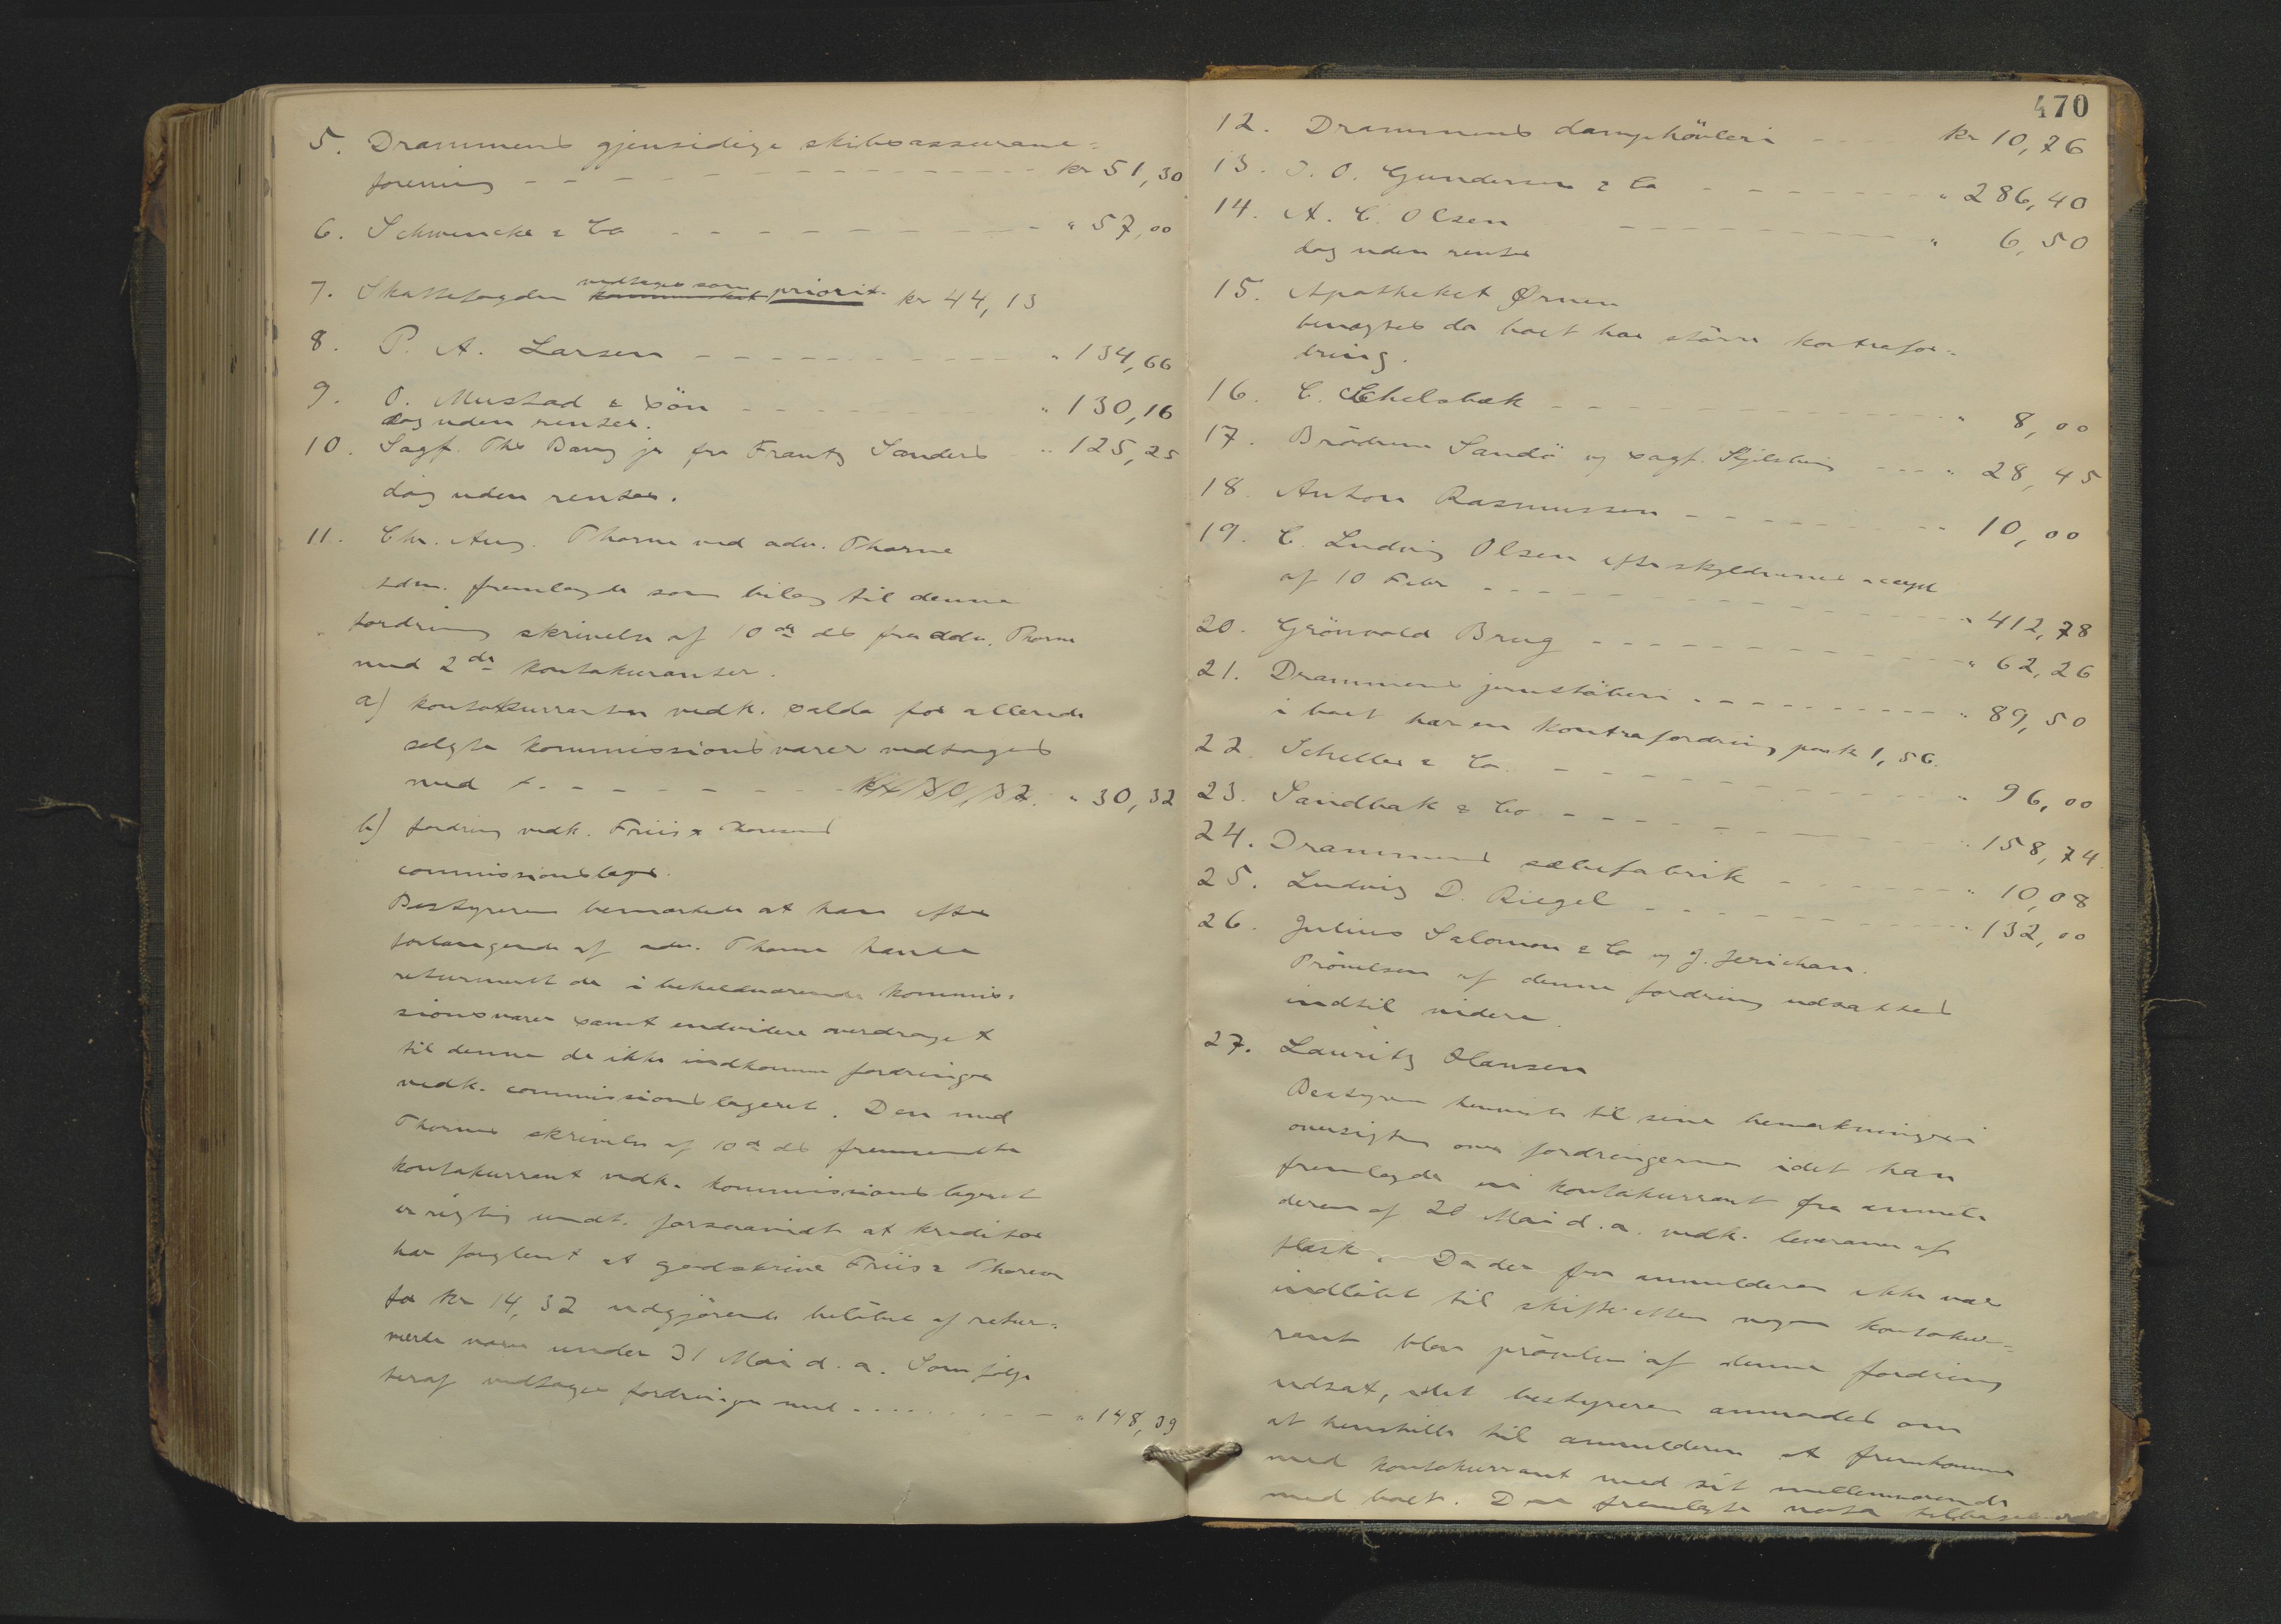 5. Drammens gjensidige skibsassurance-
forening - - - - - - - - - - kr 51,30
6. Schwencke & Co - - - - - - - - - - " 57,00
7. Skattefogden vedtages som priorit. kr 44,13
8. P. A. Larsen - - - - - - - - - - " 134,66
9. O. Mustad & søn - - - - - - - - " 130,16
dog uden renter.
10. Sagf. Ths Bang jr for Frantz Sanders - " 125,25
dog uden renter.
11. Chr. Aug. Thorne ved adv. Thorne
sdm. fremlagde som bilag til denne
fordring skrivelse af 10de ds fra adv. Thorne
med 2de kontokuranter.
a) kontokurranten vedk. saldo for allerede
solgte kommissionsvarer vedtages
med - - - - - - - kr 30,32 " 30,32
b) fordring vedk. Friis & Thoresens
commissionslager.
Bestyreren bemærkede at han efter
forlangende af adv. Thorne havde
returnert de i beholdværende kommis-
sionsvarer samt endvidere overdraget
til denne de ikke indkomne fordringer
vedk. commissionslageret. Den med
Thornes skrivelse af 10de ds fremsendte
kontokurrant vedk. kommissionslageret
er rigtig undt. forsaavidt at kreditor
har forglemt at godskrive Friis & Thoresen
for kr 14,32 udgjørende beløbet af retur-
nerte varer under 31 Mai d. a. Som følge
heraf vedtages fordringen med - - - - - - " 148,39
470
12. Drammens damphøvleri - - - - kr 10,76
13. J. O. Gundersen & Co - - - - - - - - " 286,40
14. A. C. Olsen - - - - - - - - - - " 6,50
dog uden renter
15. Apotheket Ørnen
benægtes da boet har større kontrafor-
dring.
16. C. Ekelsbæk - - - - - - - - - - " 8,00
17. Brødrene Sandø og sagf. - - - " 28,45
18. Anton Rasmussen - - - - - - - - - " 10,00
19. C. Ludvig Olsen efter skyldnernes accept
af 10 Febr - - - - - - - - - - - " 412,78
20. Grønvold Brug - - - - - - - - - - " 62,26
21. Drammens jernstøberi - - - - - - - - " 89,50
i boet har en kontrafordring paa k 1,56.
22. Scheller & Co. - - - - - - - - - - " 96,00
23. Sandbæk & Co - - - - - - - - - - " 158,74
24. Drammens sæbefabrik - - - - - - " 10,08
25. Ludvig D. Riegel - - - - - - - - " 132,00
26. Julius Salomon & Co og J. Jerichau.
Prøvelsen af denne fordring udsattes
indtil videre.
27. Lauritz Hansen
Bestyreren henviste til sine bemærkninger i
oversigten over fordringerne idet han
fremlagde en kontokurrant fra anmel-
deren af 20 Mai d. a. vedk. leverance af
flesk. Da der fra anmelderen ikke var
indløbet til skifteretten nogen kontokur-
rant blev prøvelsen af denne fordring
udsat, idet bestyreren anmodes om
at henstille til anmelderen at fremkomme
med kontokurrant med sit mellemværende
med boet. Den fremlagte nota